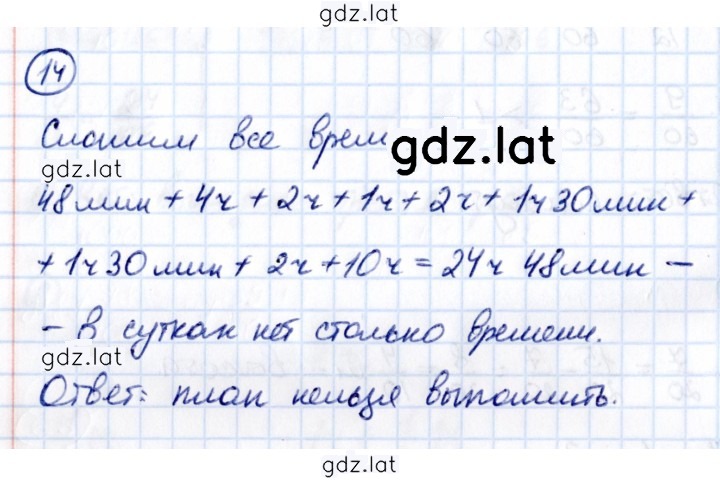 gdz.lat
14
Сложим все врем
gdz.lat
gdz.lat
48мин + 4ч + 2ч + 1ч + 2ч + 1ч 30мин +
+ 1ч 30мин + 2ч + 10ч = 24ч 48мин –
– в сутках нет столько времени.
gdz.lat
Ответ: план нельзя выполнить.
gdz.lat